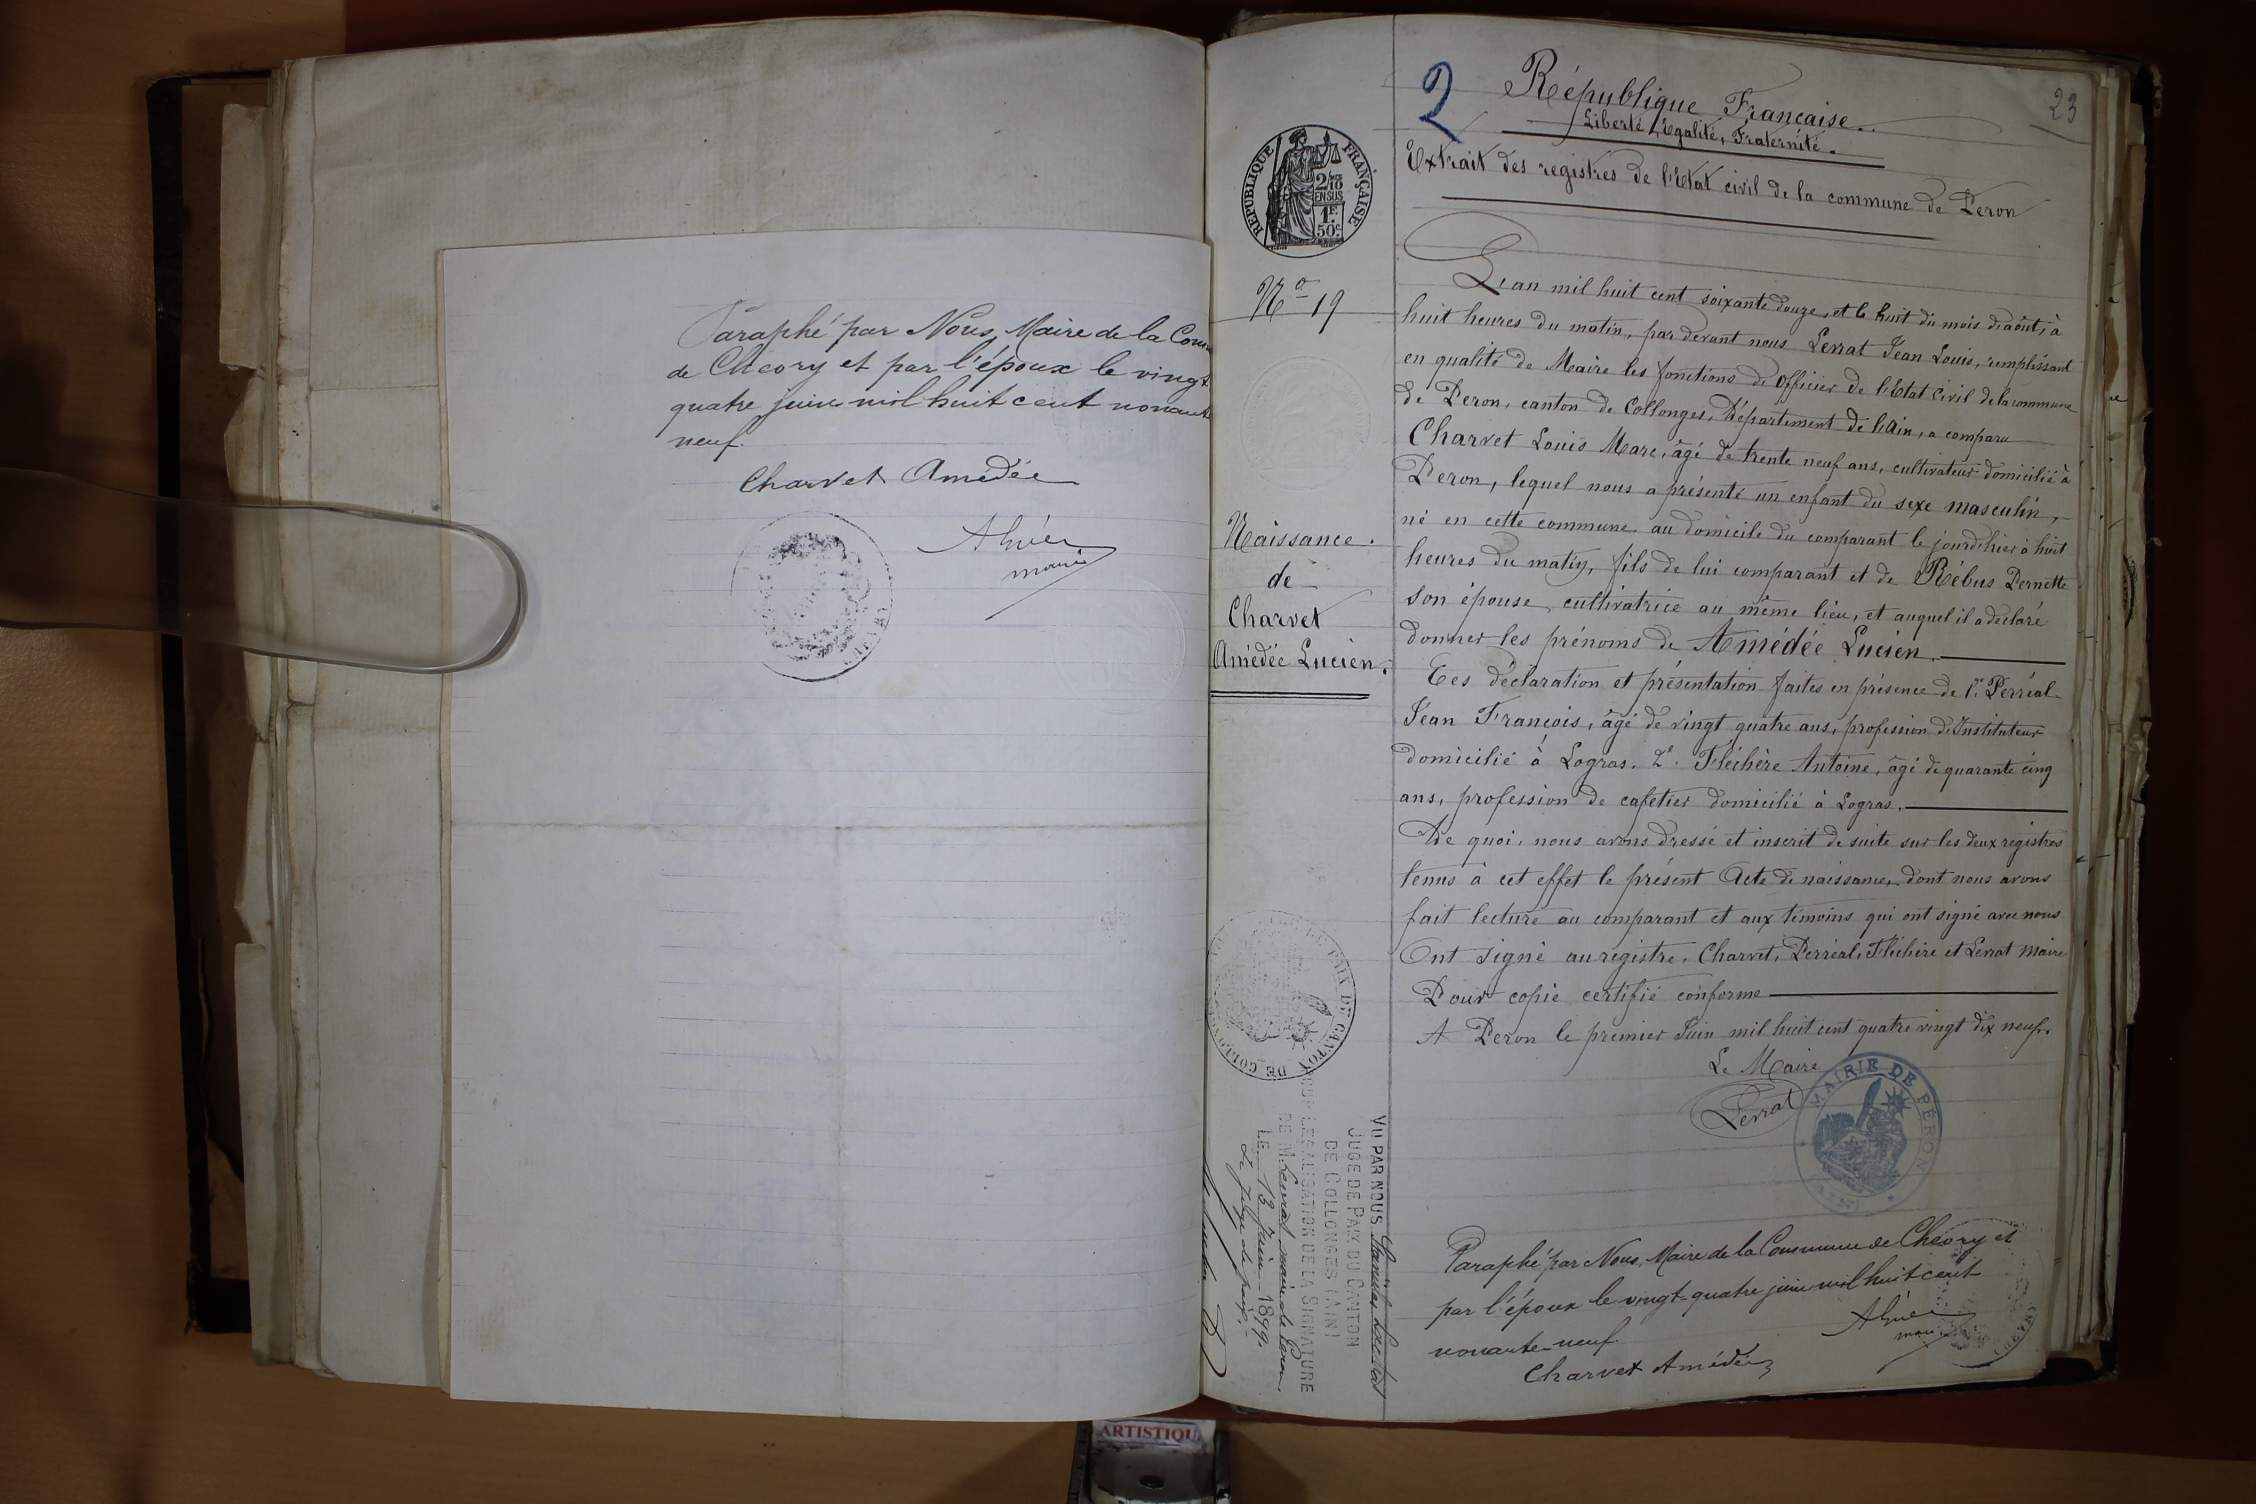 Paraphé par Nous, Maire de la Comm
de Chéory et par l'époux le vingt
quatre juin mil huit cent nonante
neuf.
Charvet Amédée
maire
2
23
République Francaise.
Liberté, Egalité, Fraternité.
Extrait des registres de l'Etat civil de la commune de Peron
REPUBLIQUE FRANÇAISE
2/10
EN SUS
1F.
50c
No 19
Naissance.
de
Charvet
Amédée Lucien.
L'an mil huit cent soixante douze, et le huit du mois d'août, à
huit heures du matin, par devant nous Levrat Jean Louis, remplissant
en qualité de Maire les fonctions d'Officier de l'Etat Civil de la commune
de Peron, canton de Collonges, Département de l'Ain, a comparu
Charvet Louis Marc, âgé de trente neuf ans, cultivateur domicilié à
Peron, lequel nous a présenté un enfant du sexe masculin,
né en cette commune au domicile du comparant le jourd'hier à huit
heures du matin, fils de lui comparant et de Rébus Pernette
son épouse, cultivatrice au même lieu, et auquel il a déclaré
donner les prénoms de Amédée Lucien.
Ces déclaration et présentation faites en présence de 1er Perréal
Jean François, âgé de vingt quatre ans, profession d'Instituteur
domicilié à Logras. 2e Fléchère Antoine, âgé de quarante cinq
ans, profession de cafetier domicilié à Logras.
De quoi, nous avons dressé et inscrit de suite sur les deux registres
tenus à cet effet le présent Acte de naissance, dont nous avons
fait lecture au comparant et aux témoins qui ont signé avec nous
Ont signé au registre, Charvet, Perréal, Fléchère et Levrat Maire
Pour copie certifié conforme
A Peron le premier Juin mil huit cent quatre vingt dix neuf.
Le Maire
Levrat
MAIRIE DE PÉRON
DE PAIX DU CANTON DE COLLONGES
VU PAR NOUS
JUGE DE PAIX DU CANTON
DE COLLONGES (AIN)
POUR LEGALISATION DE LA SIGNATURE
DE M. Levrat maire de Peron,
LE 13 Juin 1899.
Le Juge de paix,
Paraphé par Nous, Maire de la Commune de Chéory et
par l'époux le vingt-quatre juin mil huit cent
nonante-neuf.
maire
Charvet Amédée
ARTISTIQU